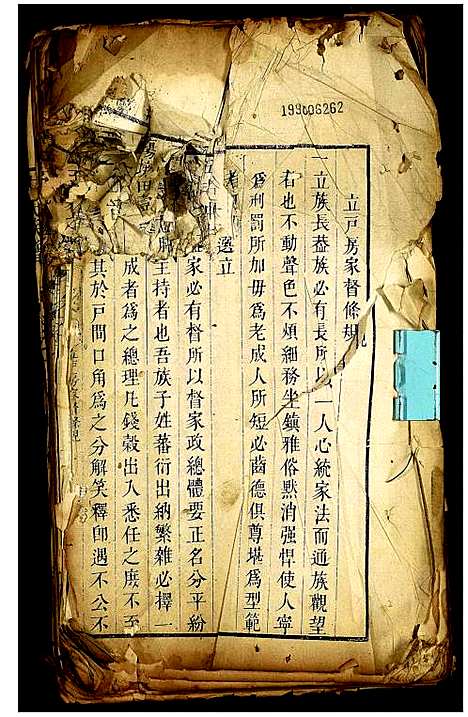 199006262
立戸房家督條規
一立族長葢族必有長所以一人心統家法而通族觀望
者也不動聲色不煩細務坐鎮雅俗默消强悍使人寧
爲刑罰所加毋爲老成人所短必齒德俱尊堪爲型範
選立
家必有督所以督家政總體要正名分平紛
主持者也吾族子姓蕃衍出納繁雜必擇一
成者爲之總理凡錢穀出入悉任之庶不至
其於戸間口角爲之分解笑釋卽遇不公不